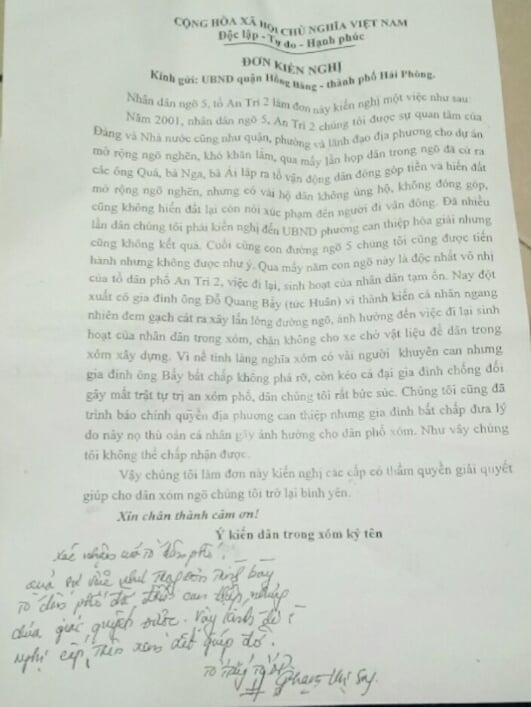 CỘNG HÒA XÃ HỘI CHỦ NGHĨA VIỆT NAM
Độc lập - Tự do - Hạnh phúc
ĐƠN KIẾN NGHỊ
Kính gửi: UBND quận Hồng Bàng - thành phố Hải Phòng.
Nhân dân ngõ 5, tổ An Trì 2 làm đơn này kiến nghị một việc như sau
Năm 2001, nhân dân ngõ 5, An Trì 2 chúng tôi được sự quan tâm của
Đảng và Nhà nước cũng như quận, phường và lãnh đạo địa phương cho dự án
mở rộng ngõ nghẽn, khó khăn lắm, qua mấy lần họp dân trong ngõ đã cử ra
các ông Quả, bà Nga, bà Ái lập ra tổ vận động dân đóng góp tiền và hiến đất
mở rộng ngõ nghẽn, nhưng có vài hộ dân không ủng hộ, không đóng góp,
cũng không hiến đất lại còn nói xúc phạm đến người đi vân đông. Đã nhiều
lần dân chúng tôi phải kiến nghị đến UBND phường can thiệp hòa giải nhưng
cũng không kết quả. Cuối cùng con đường ngõ 5 chúng tôi cũng được tiến
hành nhưng không được như ý. Qua mấy năm con ngõ này là độc nhất vô nhị
của tổ dân phố An Trì 2, việc đi lại, sinh hoạt của nhân dân tạm ổn. Nay đột
xuất có gia đình ông Đỗ Quang Bảy (tức Huân) vì thành kiến cá nhân ngang
nhiên đem gạch cát ra xây lấn lòng đường ngõ, ảnh hưởng đến việc đi lại sinh
hoạt của nhân dân trong xóm, chặn không cho xe chở vật liệu để dân trong
xóm xây dựng. Vì nể tình làng nghĩa xóm có vài người khuyên can nhưng
gia đình ông Bẩy bất chấp không phá rỡ, còn kéo cả đại gia đình chống đối
gây mất trật tự trị an xóm phố, dân chúng tôi rất bức súc. Chúng tôi cũng đã
trình báo chính quyền địa phương can thiệp nhưng gia đình bất chấp đưa lý
do này nọ thù oán cá nhân gây ảnh hưởng cho dân phố xóm. Như vậy chúng
tôi không thể chấp nhận được.
Vậy chúng tôi làm đơn này kiến nghị các cấp có thẩm quyền giải quyết
giúp cho dân xóm ngõ chúng tôi trở lại bình yên.
Xin chân thành cảm ơn!
Ý kiến dân trong xóm ký tên
xác nhận của tổ dân phố.
trình bày
Tổ dân phố đã can thiệp, nhưng
chưa giải quyết được. Vậy kính đề
nghị cấp trên xem xét giúp đỡ.
Phạm Thị